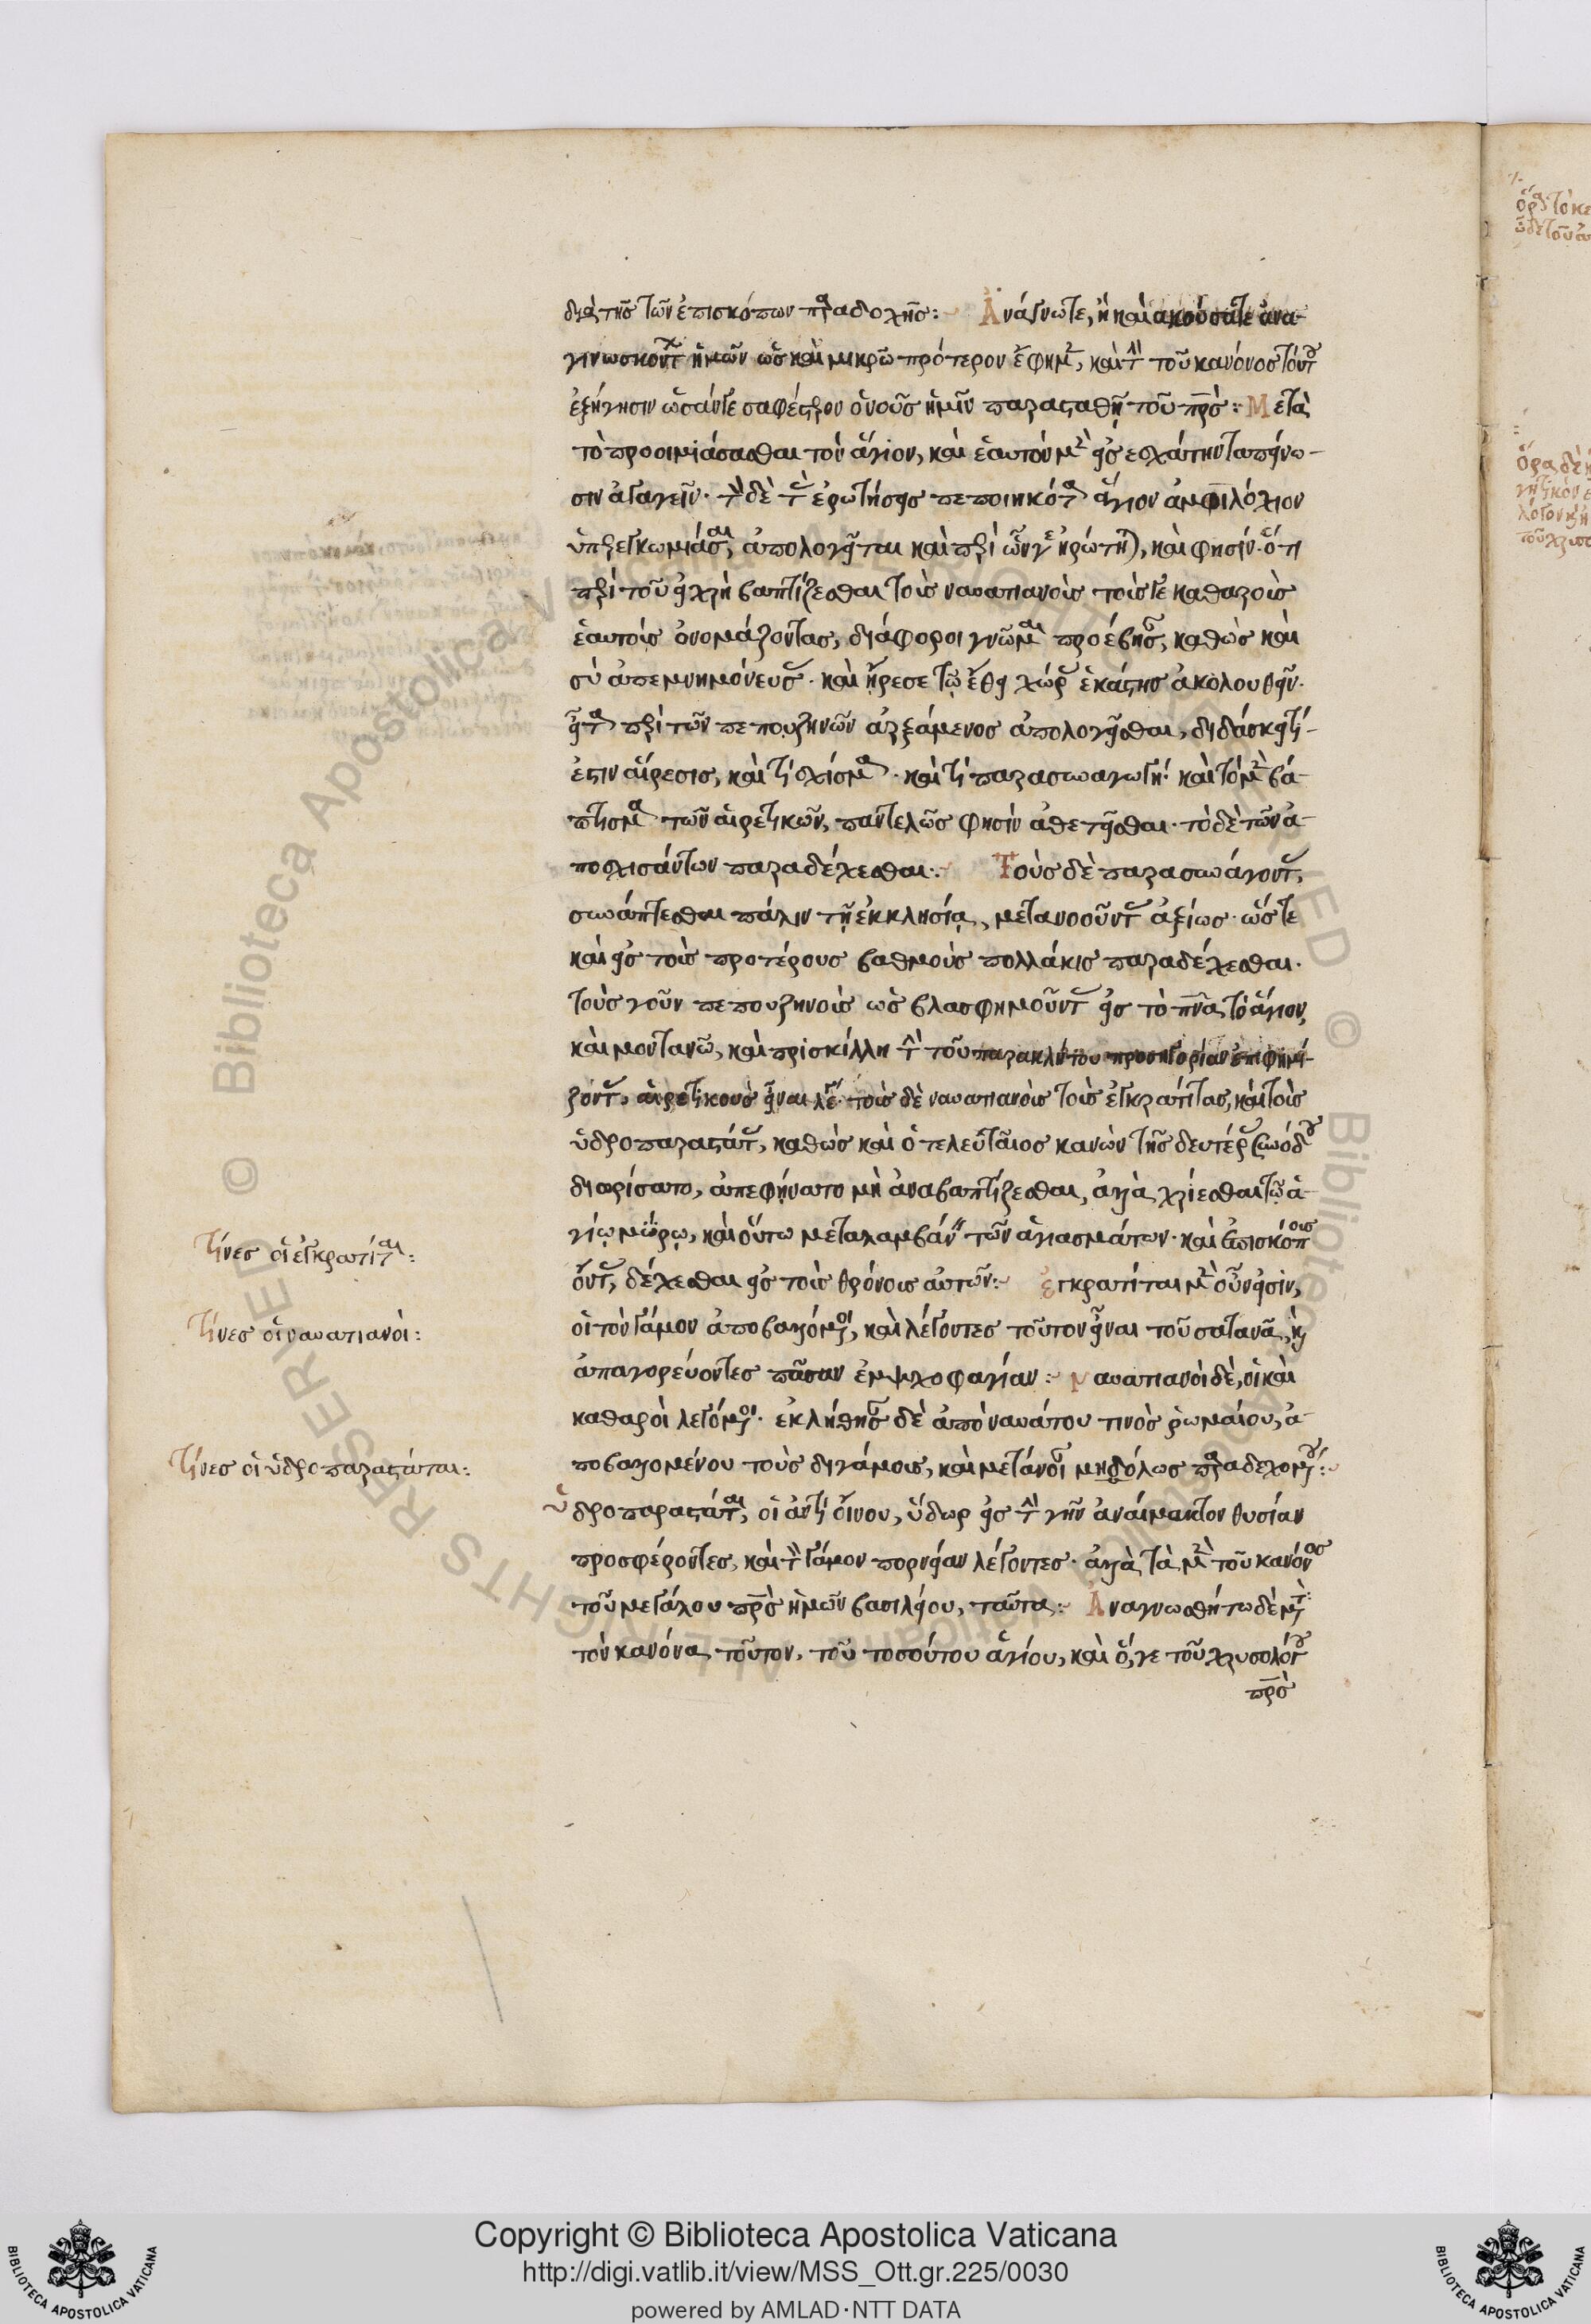 διὰ τῆς τῶν ἐπισκόπων παραδοχῆς: Ἀνάγνωτε, ἢ καὶ ἀκούσατε ἀνα-
γινωσκόντων ἡμῶν ὡς καὶ μικρῷ πρότερον ἔφημεν, καὶ τὴν τοῦ κανόνος τούτου
ἐξήγησιν ὡσάντε σαφέστερον ὁ νοῦς ἡμῖν παρασταθῇ τοῦ πρς: Μετὰ
τὸ προοιμιάσασθαι τὸν ἅγιον, καὶ ἑαυτὸν μὲν εἰς ἐσχάτην ταπείνω-
σιν ἀγαγεῖν. τὸν δὲ τὰς ἐρωτήσεις πεποιηκότα ἅγιον ἀμφιλόχιον
ὑπερεγκωμιάσαι, ἀπολογεῖται καὶ περὶ ὧν γε ἠρώτηται, καὶ φησίν. ὅτι
περὶ τοῦ εἰ χρὴ βαπτίζεσθαι τοὺς ναυατιανοὺς τούς τε καθαροὺς
ἑαυτοὺς ὀνομάζοντας, διάφοροι γνῶμαι προέβησαν, καθὼς καὶ
σὺ ἀπεμνημόνευσας. καὶ ἤρεσε τῷ ἔθει χώρας ἑκάστης ἀκολουθεῖν.
εἶτα περὶ τῶν πεπουζηνῶν ἀρξάμενος ἀπολογεῖσθαι, διδάσκει τί
ἐστιν αἵρεσις, καὶ τί σχίσμα. καὶ τί παρασυναγωγή! καὶ τὸ μὲν βά-
πτισμα τῶν αἱρετικῶν, παντελῶς φησὶν ἀθετεῖσθαι. τὸ δὲ τῶν ἀ-
ποσχισάντων παραδέχεσθαι: Τοὺς δὲ παρασυνάγοντας,
συνάπτεσθαι πάλιν τῇ ἐκκλησίᾳ, μετανοοῦντας ἀξίως. ὥστε
καὶ εἰς τοὺς προτέρους βαθμοὺς πολλάκις παραδέχεσθαι.
τοὺς γοῦν πεπουζηνοὺς ὡς βλασφημοῦντας εἰς τὸ πνα τὸ ἅγιον,
καὶ μοντανῷ, καὶ πρισκίλλη τὴν τοῦ παρακλήτου προσηγορίαν ἐπιφημί-
ζοντας, αἱρετικοὺς εἶναι λέγει. τοὺς δὲ ναυατιανοὺς τοὺς ἐγκρατίτας, καὶ τοὺς
ὑδροπαραστάτας, καθὼς καὶ ὁ τελευταῖος κανὼν τῆς δευτέρας συνόδου
διωρίσατο, ἀπεφήνατο μὴ ἀναβαπτίζεσθαι, ἀλλὰ χρίεσθαι τῷ ἁ-
γίῳ μύρῳ, καὶ οὕτω μεταλαμβάνειν τῶν ἁγιασμάτων. καὶ ἐπισκόπους
ὄντας, δέχεσθαι εἰς τοὺς θρόνους αὐτῶν: ἐγκρατίται μὲν οὖν εἰσὶν,
οἱ τὸν γάμον ἀποβαλλόμενοι, καὶ λέγοντες τοῦτον εἶναι τοῦ σατανᾶ, καὶ
ἀπαγορεύοντες πᾶσαν ἐμψυχοφαγίαν: ναυατιανοὶ δὲ, οἱ καὶ
καθαροὶ λεγόμενοι. ἐκλήθησαν δὲ ἀπὸ ναυάτου τινὸς ῥωμαίου, ἀ-
ποβαλλομένου τοὺς διγάμους, καὶ μετάνοιαν μηδόλως παραδεχομένου:
ὑδροπαραστάται, οἱ ἀντὶ οἴνου, ὕδωρ εἰς τὴν γῆν ἀναίμακτον θυσίαν
προσφέροντες, καὶ τὸν γάμον πορνείαν λέγοντες. ἀλλὰ τὰ μὲν τοῦ κανόνος
τοῦ μεγάλου πρς ἡμῶν βασιλείου, ταῦτα: Ἀναγνωσθήτω δὲ μετὰ
τὸν κανόνα τοῦτον, τοῦ τοσούτου ἁγίου, καὶ ὅ,γε τοῦ χρυσολόγου
πρς
Τίνες οἱ ἐγκρατίται:
Τίνες οἱ ναυατιανοί:
Τίνες οἱ ὑδροπαραστάται:
© Biblioteca Apostolica Vaticana ALL RIGHTS RESERVED
Copyright © Biblioteca Apostolica Vaticana
http://digi.vatlib.it/view/MSS_Ott.gr.225/0030
powered by AMLAD·NTT DATA
BIBLIOTECA APOSTOLICA VATICANA
BIBLIOTECA APOSTOLICA VATICANA